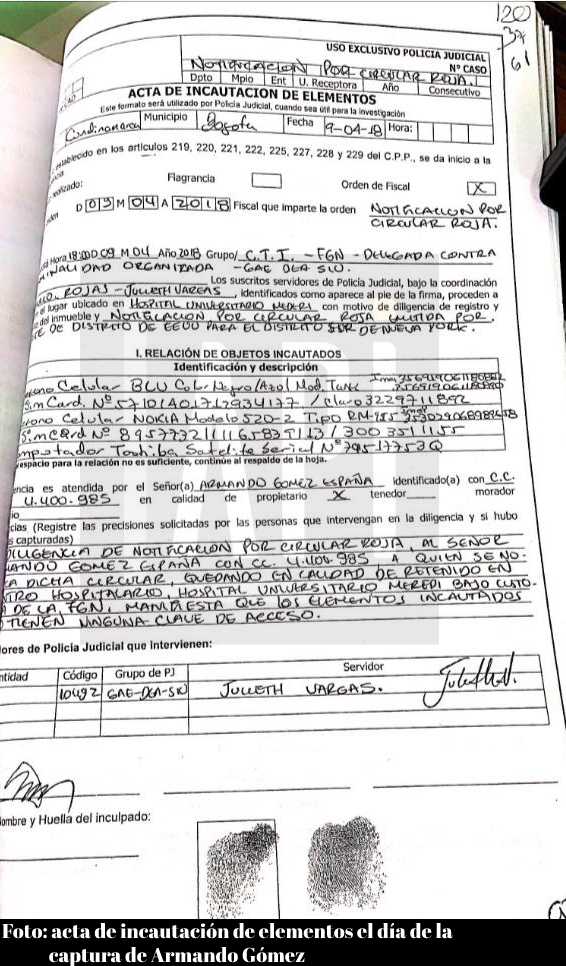 120
37
61
USO EXCLUSIVO POLICIA JUDICIAL
Nº CASO
NOTIFICACION POR CIRCULAR ROJA
Dpto Mpio Ent U. Receptora Año Consecutivo
ACTA DE INCAUTACIÓN DE ELEMENTOS
Este formato será utilizado por Policía Judicial, cuando sea útil para la investigación
Cundinamarca Municipio Bogota Fecha 9-04-18 Hora:
establecido en los artículos 219, 220, 221, 222, 225, 227, 228 y 229 del C.P.P., se da inicio a la
Flagrancia Orden de Fiscal X
D 09 M 04 A 2018 Fiscal que imparte la orden NOTIFICACION POR
CIRCULAR ROJA.
Hora 18:00 D 09 M 04 Año 2018 Grupo/ C.T.I. -FGN - DELEGADA CONTRA
NALIDAD ORGANIZADA -GAE DEA SIU.
Los suscritos servidores de Policía Judicial, bajo la coordinación
ROJAS - JULIETH VARGAS, identificados como aparece al pie de la firma, proceden a
lugar ubicado en HOSPITAL UNIVERSITARIO MEDERI con motivo de diligencia de registro y
del inmueble y NOTIFICACION POR CIRCULAR ROJA EMITIDA POR.
DE DISTRITO DE EEUU PARA EL DISTRITO SUR DE NUEVA YORK.
I. RELACIÓN DE OBJETOS INCAUTADOS
Identificación y descripción
Celular BLU Color Negro/Azul Mod. Tank
Sim Card. Nº 57101401712934177 / Claro 3229711892
Celular NOKIA Modelo 520-2 Tipo RM-155
Simcard Nº / 300 3511155
Toshiba Satelite Serial Nº 79517753Q
espacio para la relación no es suficiente, continúe al respaldo de la hoja.
encia es atendida por el Señor(a) ARMANDO GOMEZ ESPAÑA identificado(a) con C.C.
4.400.985 en calidad de propietario X tenedor morador
cias (Registre las precisiones solicitadas por las personas que intervengan en la diligencia y si hubo
s capturadas)
DILIGENCIA DE NOTIFICACION POR CIRCULAR ROJA, AL SEÑOR
ANDO GOMEZ ESPAÑA CON CC. 4.400.985 A QUIEN SE NO-
A DICHA CIRCULAR, QUEDANDO EN CALIDAD DE RETENIDO EN
TRO HOSPITALARIO, HOSPITAL UNIVERSITARIO MEREDI BAJO CUSTO-
DE LA FGN, MANIFIESTA QUE LOS ELEMENTOS INCAUTADOS
TIENEN NINGUNA CLAVE DE ACCESO.
ores de Policía Judicial que intervienen:
ntidad Código Grupo de PJ Servidor
10492 GAE-DEA-SIU JULIETH VARGAS.
ombre y Huella del inculpado:
Foto: acta de incautación de elementos el día de la
captura de Armando Gómez